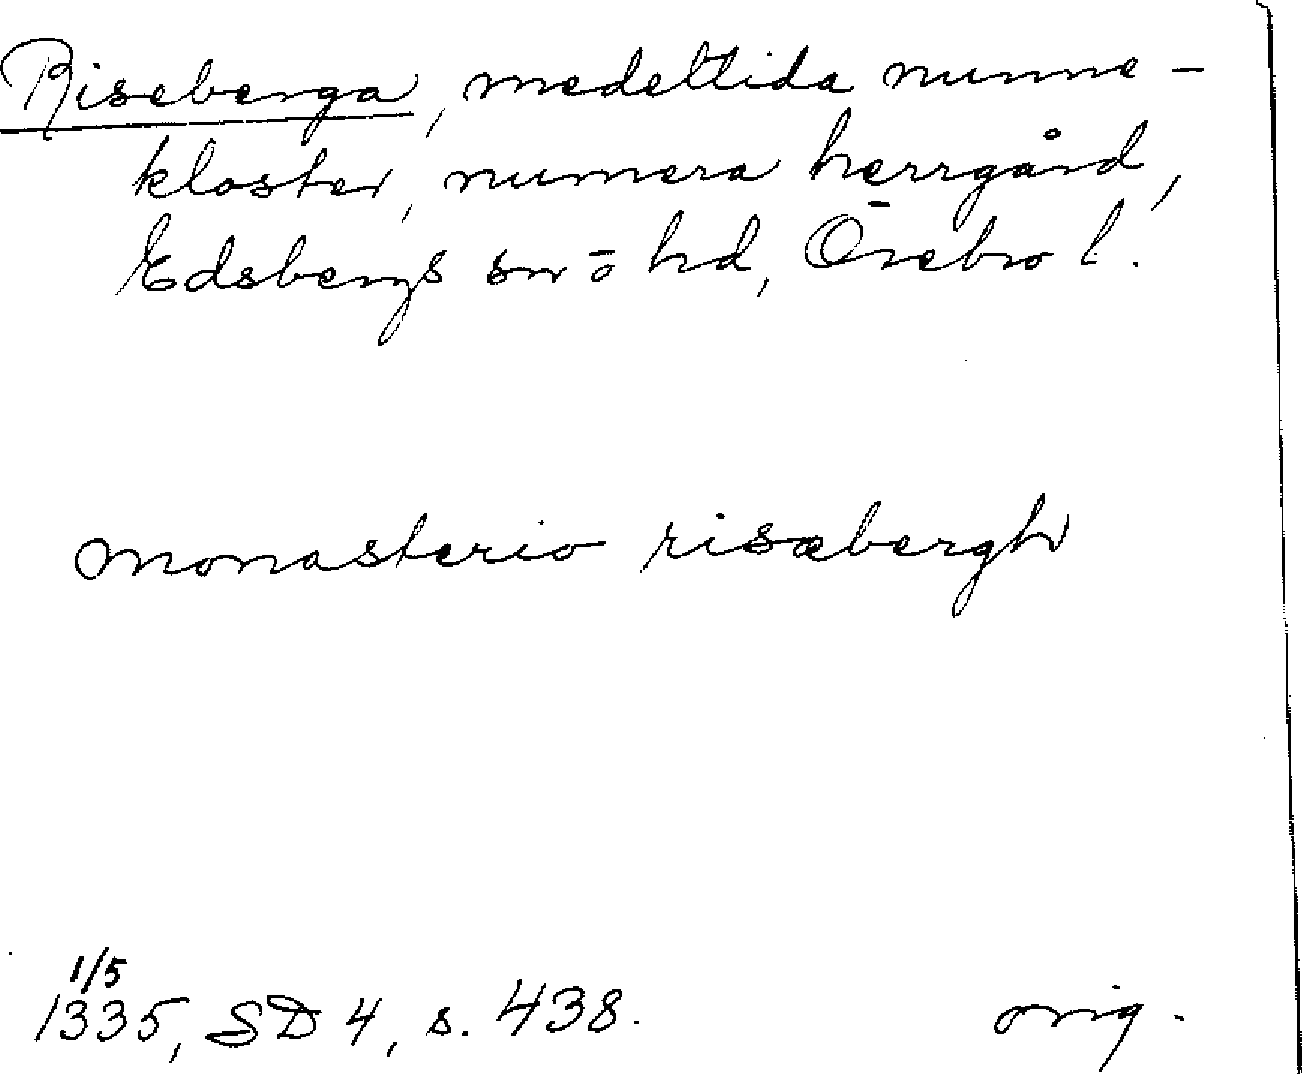 Riseberga, medeltida nunne-
kloster, numera herrgård,
Edsbergs sn o hd, Örebro l.
monasterio risæbergh
1/5
1335, SD 4, s. 438. orig.